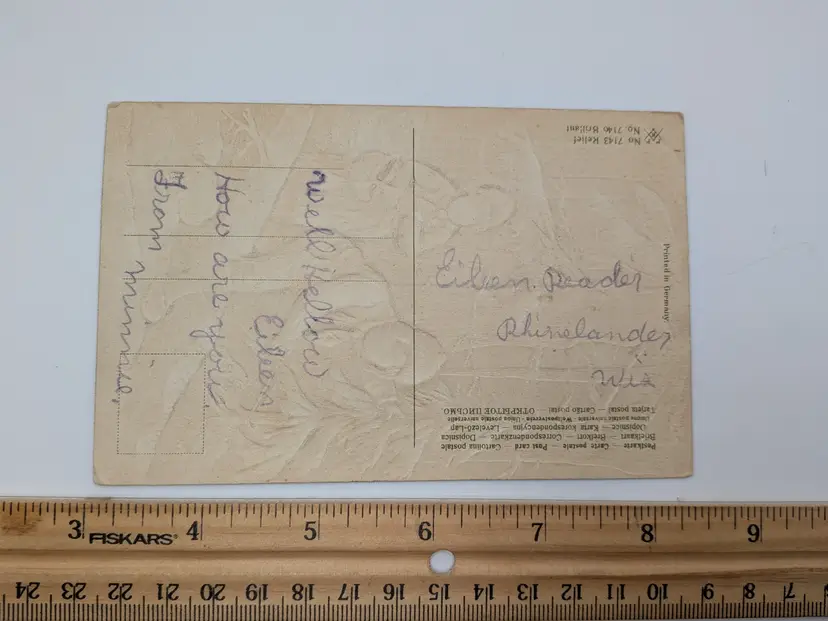 Well Hellow
Eileen
How are you
From Minnie,
Eileen Reader
Rhinelander
Wis
Printed in Germany
No. 7143 Relief
No. 7140 Brillant
Postkarte — Carte postale — Post card — Cartolina postale
Briefkaart — Brefkort — Correspondenzkarte — Dopisnica
Dopisnice — Karta korespondencyjna — Levelező-Lap
Unione postale universale — Weltpostverein — Union postale universelle
Tarjeta postal — Cartão postal — ОТКРЫТОЕ ПИСЬМО
3 FISKARS 4 5 6 7 8 9
24 23 22 21 20 19 18 17 16 15 14 13 12 11 10 9 8 7